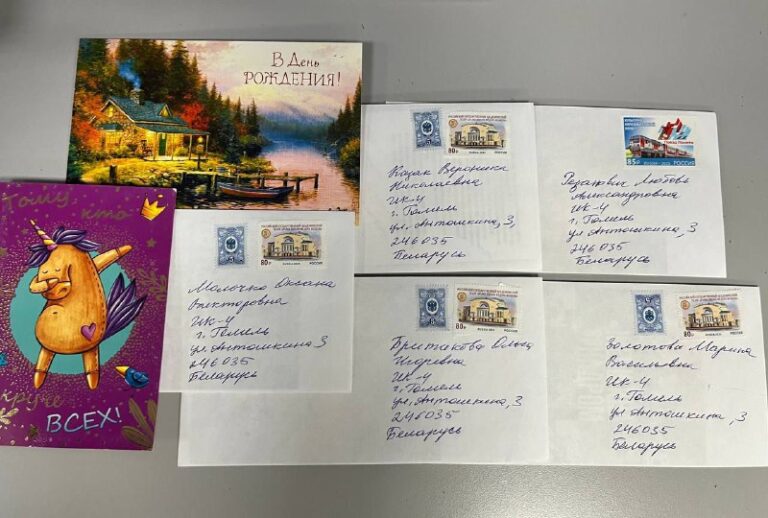 В День
РОЖДЕНИЯ!
Тому,
кто
круче
ВСЕХ!
80р
РОССИЯ
Козак Вероника
Николаевна
ИК-4
г. Гомель
ул. Антошкина, 3,
246035
Беларусь
85р
РОССИЯ
Резанович Любовь
Александровна
ИК-4
г. Гомель
ул Антошкина, 3
246035
Беларусь
5
80р
РОССИЯ
Молочко Оксана
Викторовна
ИК-4
г. Гомель
ул. Антошкина 3
246035
Беларусь
80р
Бритикова Ольга
Игоревна
ИК-4
г. Гомель
ул. Антошкина, 3
246035
Беларусь
5
80р
РОССИЯ
Золотова Марина
Васильевна
ИК-4
г. Гомель
ул Антошкина, 3
246035
Беларусь